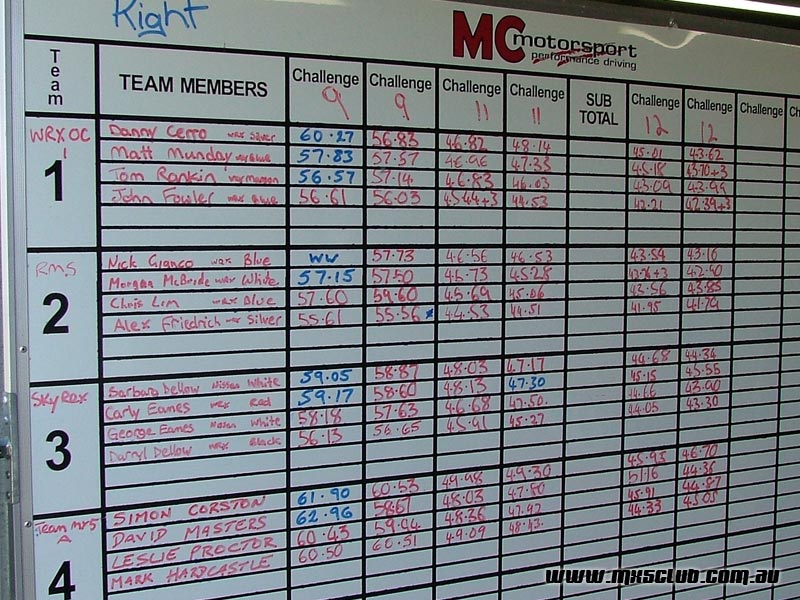 Right
MC motorsport
performance driving
Team TEAM MEMBERS Challenge 9 Challenge 9 Challenge 11 Challenge 11 SUB TOTAL Challenge 12 Challenge 12 Challenge
WRX OC 1
1
Danny Cerro WRX Silver 60.27 56.83 46.82 48.14 45.01 43.62
Matt Munday WRX Blue 57.83 57.57 46.96 47.33 45.18 43.70+3
Tom Rankin WRX 56.57 57.14 46.83 46.03 43.09 43.99
John Fowler WRX Blue 56.61 56.03 45.44+3 44.53 42.21 42.39+3
RMS
2
Nick Gianco WRX Blue WW 57.73 46.56 46.53 43.54 43.16
Morgan McBride WRX White 57.15 57.50 46.73 45.28 42.76+3 42.90
Chris Lim WRX Blue 57.60 59.60 45.69 45.06 43.56 43.85
Alex Friedrich WRX Silver 55.61 55.56* 44.53 44.51 41.95 41.79
SKYREX
3
Barbara Dellow Nissan White 59.05 58.87 48.03 47.17 44.68 44.34
Carly Eames WRX Red 59.17 58.60 48.13 47.30 45.15 45.55
George Eames Nissan White 58.18 57.63 46.68 47.50 44.66 43.90
Darryl Dellow WRX Black 56.13 56.65 45.91 45.27 44.05 43.30
Team MX5 A
4
SIMON CORSTON 61.90 60.53 49.98 49.30 45.93 46.70
DAVID MASTERS 62.96 58.67 48.03 47.80 51.16 44.36
LESLIE PROCTOR 60.43 59.94 48.36 47.92 45.91 44.87
MARK HARDCASTLE 60.50 60.51 49.09 48.43 44.33 45.05
www.mx5club.com.au